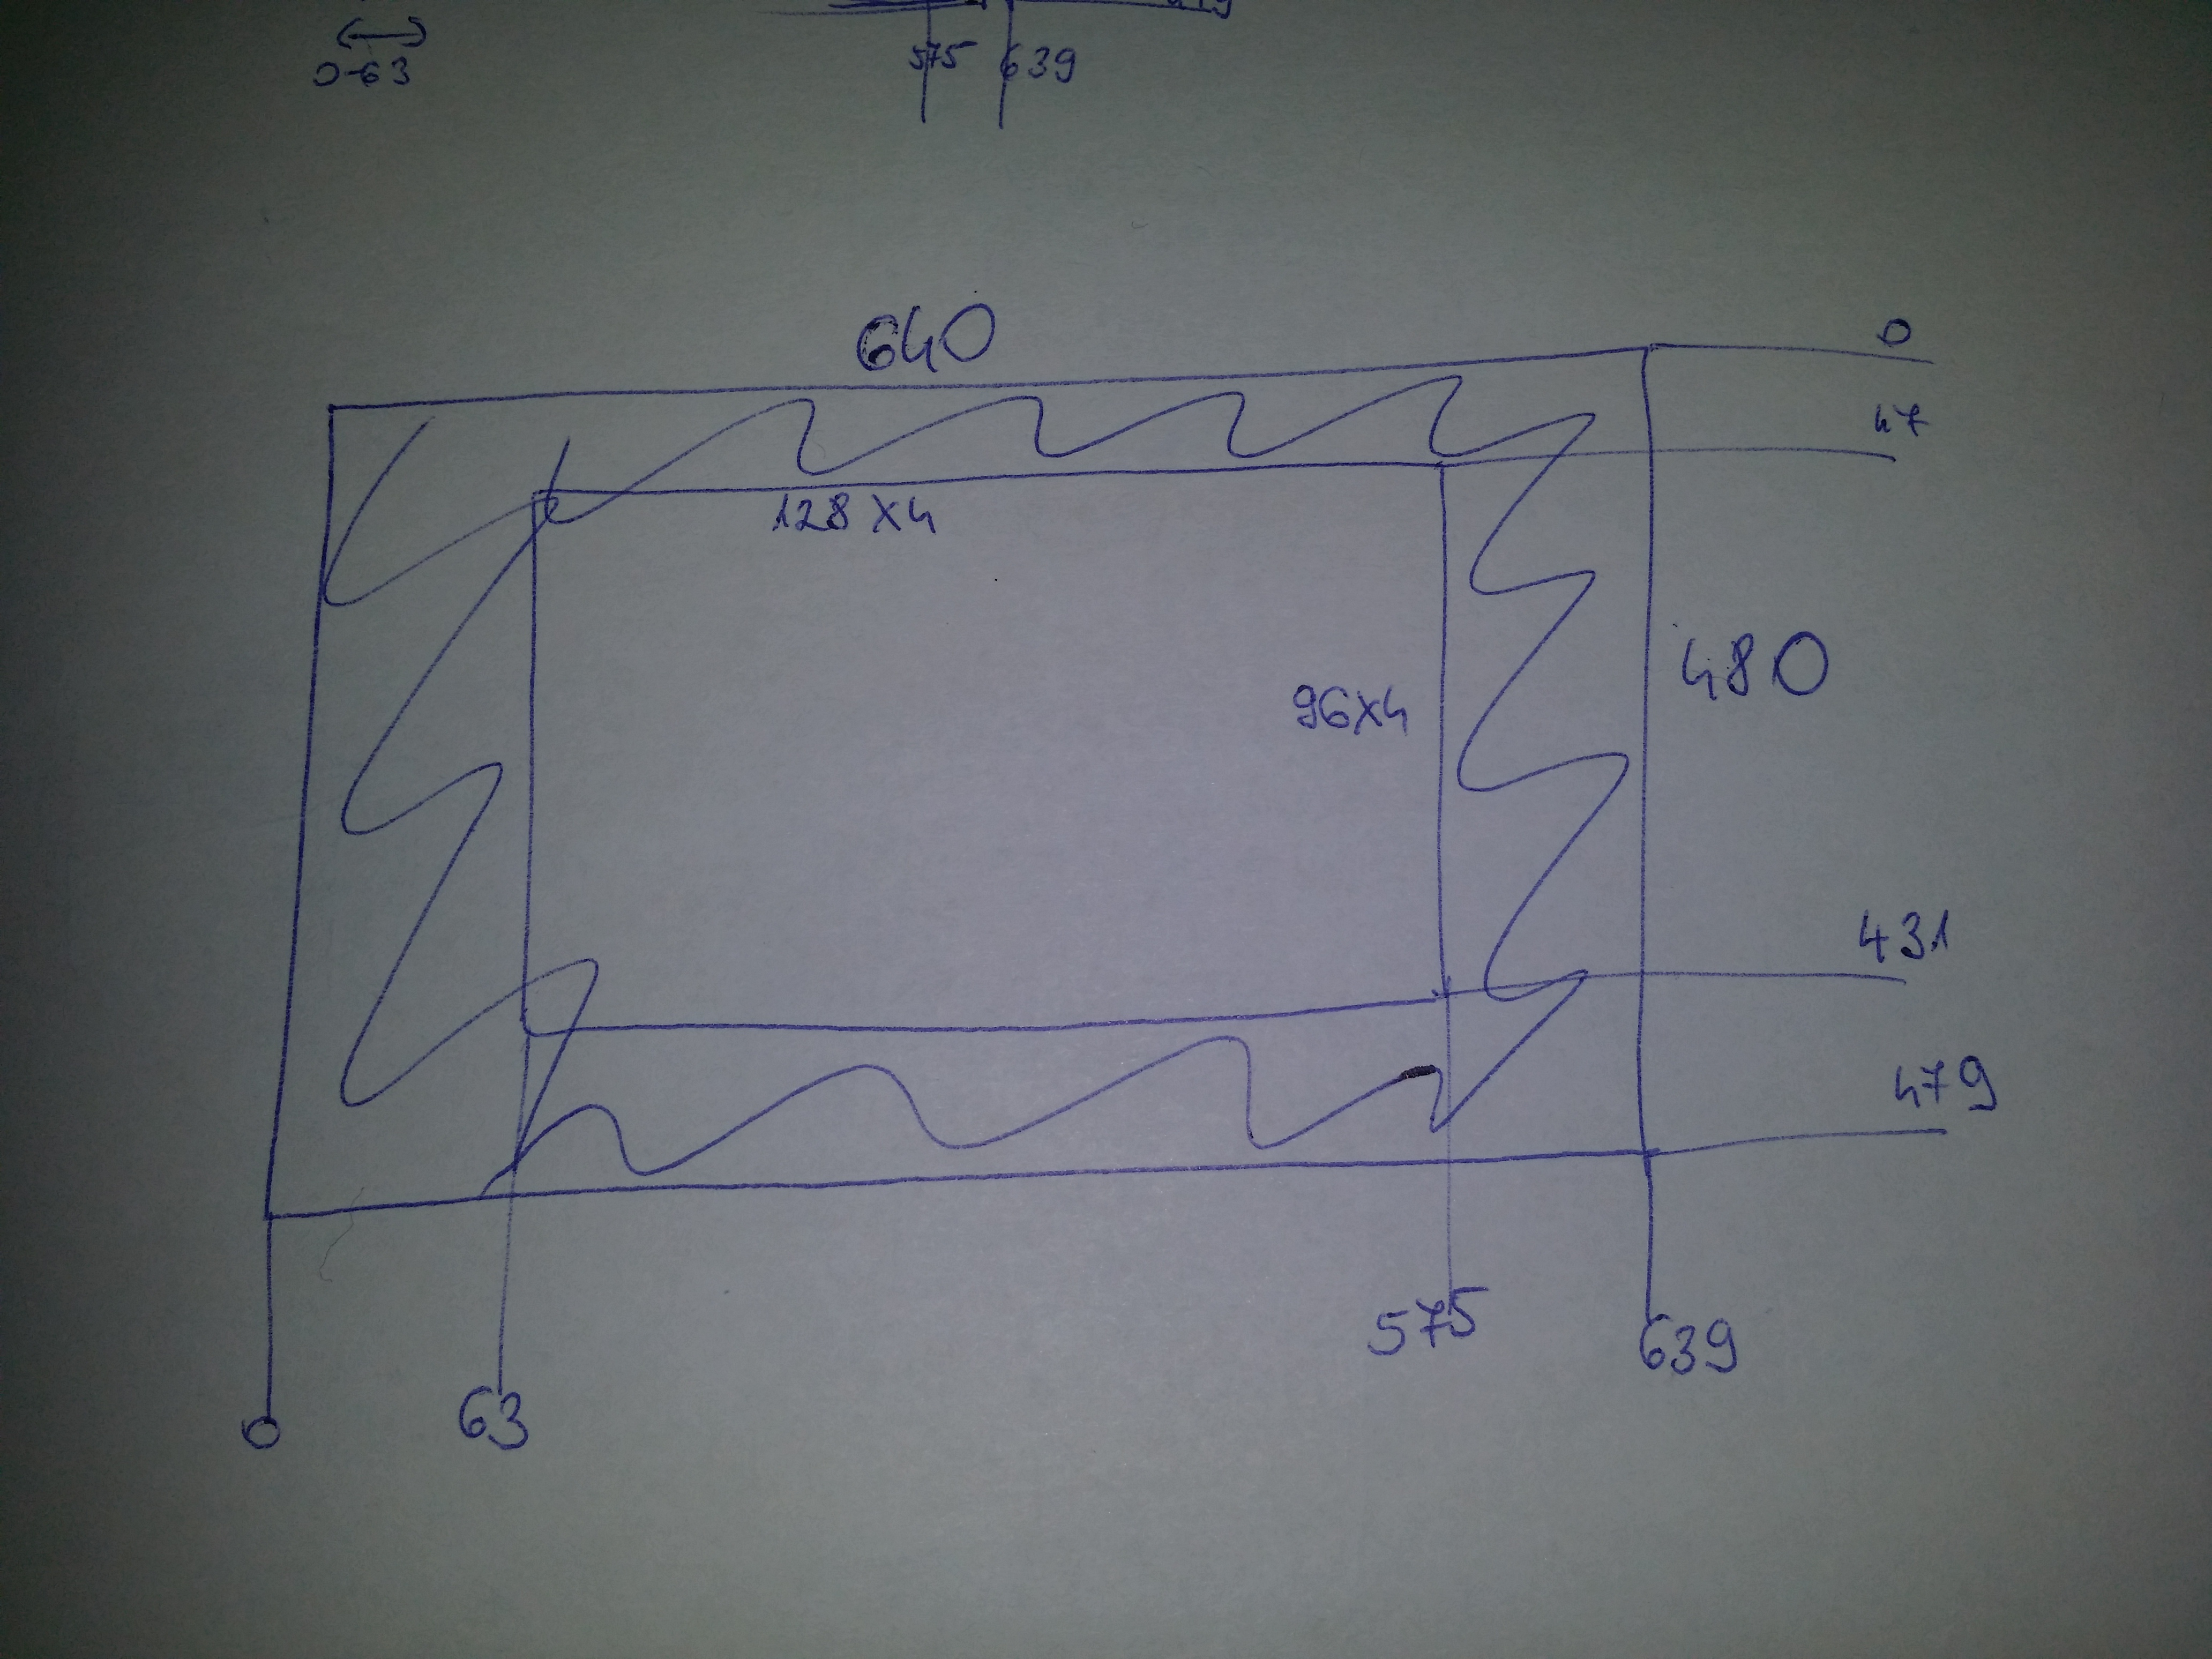 0-63
575 639
640
0
47
128x4
480
96x4
431
479
575
639
63
0